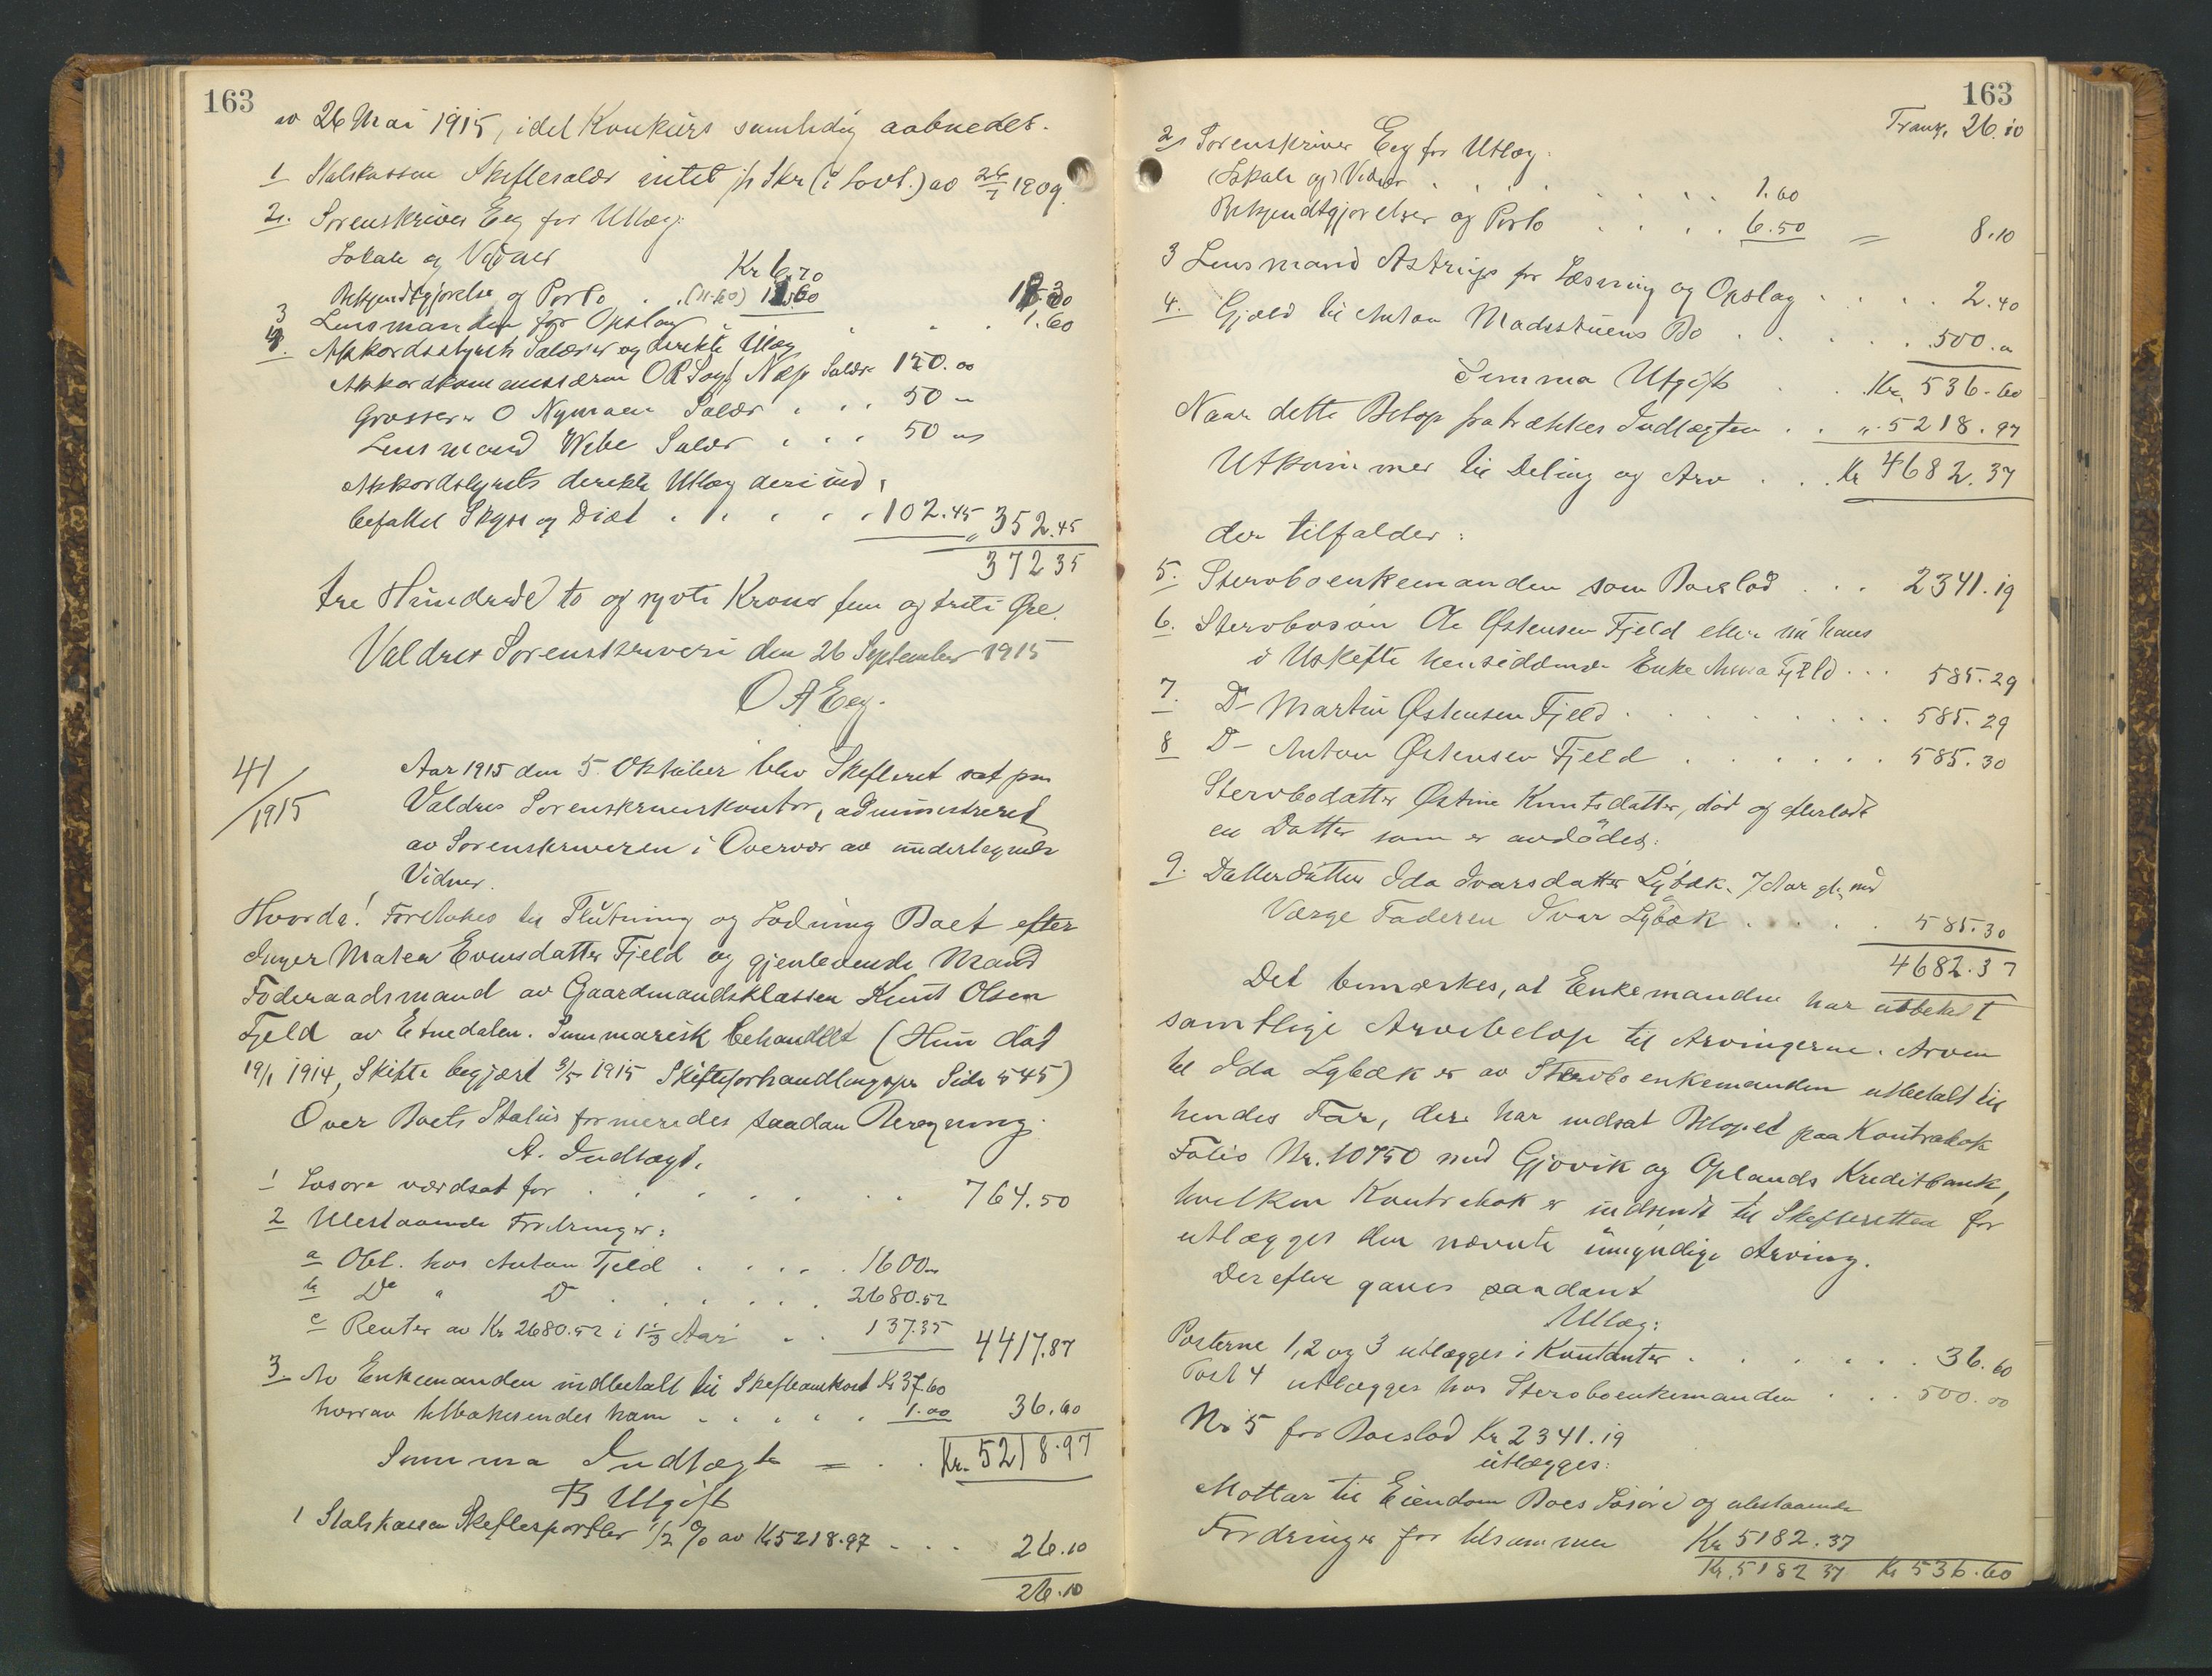 163
av 26 Mai 1915, idet Konkurs samtidig aabnedes.
1 Statskassen Skiftesalær intet jfr Skr (i Lovt.) av 26/7 1909.
2. Sorenskriver Eeg for Utlæg:
Lokale og Vidner Kr 6.70
Bekjendtgjørelse og Porto . . (11.60) 11.60 18.30
3 Lensmanden for Opslag . . . 1.60
4. Akkordstyrets Salærer og direkte Utlæg
Akkordkommissæren OR Sagf Næp Salær 150.00
Grosserer O Nyman Salær . . . 50 -
Lensmand Wibe Salær . . . 50 -
Akkordstyrets direkte Utlæg deri ind,
befattet Skyss og Diæt . . . . . 102.45 " 352.45
372 35
tre Hundrede to og sytti Kroner fem og treti Øre.
Valdres Sorenskriveri den 26 September 1915
O A Eeg.
41/1915
Aar 1915 den 5. Oktober blev Skifteret sat paa
Valdres Sorenskriverkontor, administreret
av Sorenskriveren i Overvær av undertegnede
Vidner.
Hvorda! Foretokes til Slutning og Lodning Boet efter
Inger Marea Evensdatter Fjeld og gjenlevende Mand
Føderaadsmand av Gaardmandsklassen Knut Olsen
Fjeld av Etnedalen. Summarisk behandlet (Hun død
19/1 1914, Skifte begjært 3/5 1915 Skifteforhandlingspr. Side 545)
Over Boets Status formeredes saadan Beregning:
A. Indtægt.
1 Løsøre værdsat for . . . . . . . 764.50
2 Utestaaende Fordringer:
a Obl. hos Anton Fjeld . . . . 1600 -
b Do " Do . . . . . . 2680.52
c Renter av Kr 2680.52 i 1 1/3 Aar . . 137.35 4417.87
3. Av Enkemanden indbetalt til Skifteomkost. Kr 37.60
hvorav tilbakesendes ham . . . . . 1.00 36.60
Summa Indtægt = . . Kr. 5218.97
B Utgift
1 Statskassen Skiftesportler 1/2 % av Kr 5218.97 . . . 26.10
26.10
163
Transp. 26.10
2. Sorenskriver Eeg for Utlæg:
Lokale og Vidner . . . . . . . 1.60
Bekjendtgjørelser og Porto . . . . 6.50 = 8.10
3 Lensmand Astrup for Læsning og Opslag . . . . 2.40
4. Gjæld til Anton Madsstuens Bo . . . . . . 500.00
Summa Utgift . . Kr. 536.60
Naar dette Beløp fratrækkes Indtægten . . " 5218.97
Utkommer til Deling og Arv . . . Kr 4682.37
der tilfalder:
5. Stervboenkemanden som Boeslod . . . 2341.19
6. Stervbosøn Ole Østensen Fjeld eller nu hans
i Uskifte hensiddende Enke Anna Fjeld . . . 585.29
7. Do Martin Østensen Fjeld . . . . . . . . . 585.29
8 Do Anton Østensen Fjeld . . . . . . . 585.30
Stervbodatter Østine Knutsdatter, død og efterladt
en Datter som er avdødes:
9. Datterdatter Ida Ivarsdatter Lybæk, 7 Aar gl., med
Værge Faderen Ivar Lybæk . . . . . 585.30
4682.37
Det bemærkes, at Enkemanden har utbetalt
samtlige Arvebeløp til Arvingerne. Arven
til Ida Lybæk er av Stervboenkemanden utbetalt til
hendes Far, der har indsat Beløpet paa Kontrabok
Folio Nr. 10750 med Gjøvik og Oplands Kreditbank,
hvilken Kontrabok er indsendt til Skifteretten for
utlægges den nævnte umyndige Arving.
Derefter gaves saadant
Utlæg:
Posterne 1, 2 og 3 utlægges i Kontanter . . . . . . 36.60
Post 4 utlægges hos Stervboenkemanden . . . 500.00
Nr 5 for Boeslod Kr 2341.19
utlægges:
Mottar til Eiendom Boets Løsøre og utestaaende
Fordringer for tilsammen Kr 5182.37
Kr. 5182 37 Kr 536.60